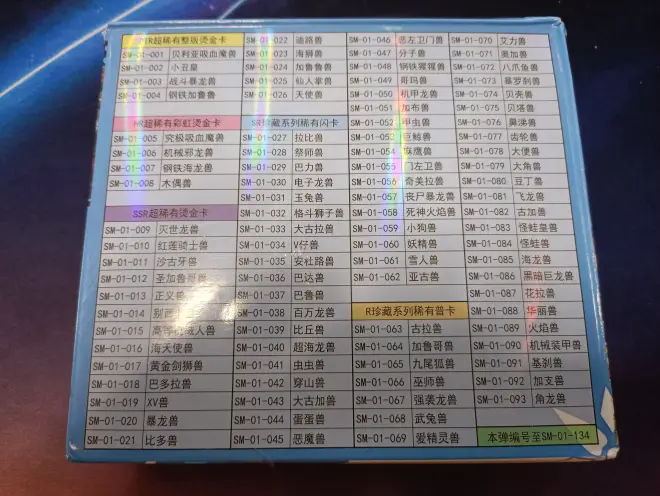 超稀有整版烫金卡
SM-01-001 贝利亚吸血魔兽
SM-01-002 小丑皇
SM-01-003 战斗暴龙兽
SM-01-004 钢铁加鲁鲁
HR超稀有彩虹烫金卡
SM-01-005 究极吸血魔兽
SM-01-006 机械邪龙兽
SM-01-007 钢铁海龙兽
SM-01-008 木偶兽
SSR超稀有烫金卡
SM-01-009 灭世龙兽
SM-01-010 红莲骑士兽
SM-01-011 沙古牙兽
SM-01-012 圣加鲁哥兽
SM-01-013 正义兽
SM-01-014 别西
SM-01-015 高等 人兽
SM-01-016 海天使兽
SM-01-017 黄金剑狮兽
SM-01-018 巴多拉兽
SM-01-019 XV兽
SM-01-020 暴龙兽
SM-01-021 比多兽
SM-01-022 迪路兽
SM-01-023 海狮兽
SM-01-024 加鲁鲁兽
SM-01-025 仙人掌兽
SM-01-026 天使兽
SR珍藏系列稀有闪卡
SM-01-027 拉比兽
SM-01-028 祭师兽
SM-01-029 巴力兽
SM-01-030 电子龙兽
SM-01-031 玉兔兽
SM-01-032 格斗狮子兽
SM-01-033 大古拉兽
SM-01-034 V仔兽
SM-01-035 安杜路兽
SM-01-036 巴达兽
SM-01-037 巴鲁兽
SM-01-038 百万龙兽
SM-01-039 比丘兽
SM-01-040 超海龙兽
SM-01-041 虫虫兽
SM-01-042 穿山兽
SM-01-043 大古加兽
SM-01-044 蛋蛋兽
SM-01-045 恶魔兽
SM-01-046 恶左卫门兽
SM-01-047 分子兽
SM-01-048 钢铁猩猩兽
SM-01-049 哥玛兽
SM-01-050 机甲龙兽
SM-01-051 加布兽
SM-01-052 甲虫兽
SM-01-053 巨鲸兽
SM-01-054 麻鹰兽
SM-01-055 门左卫兽
SM-01-056 奇美拉兽
SM-01-057 丧尸暴龙兽
SM-01-058 死神火焰兽
SM-01-059 小狗兽
SM-01-060 妖精兽
SM-01-061 雪人兽
SM-01-062 亚古兽
R珍藏系列稀有普卡
SM-01-063 古拉兽
SM-01-064 加鲁哥兽
SM-01-065 九尾狐兽
SM-01-066 巫师兽
SM-01-067 强袭龙兽
SM-01-068 武兔兽
SM-01-069 爱精灵兽
SM-01-070 艾力兽
SM-01-071 奥加兽
SM-01-072 八爪鱼兽
SM-01-073 暴罗剎兽
SM-01-074 贝壳兽
SM-01-075 贝塔兽
SM-01-076 鼻涕兽
SM-01-077 齿轮兽
SM-01-078 大便兽
SM-01-079 大角兽
SM-01-080 豆丁兽
SM-01-081 飞龙兽
SM-01-082 古加兽
SM-01-083 怪蛙皇兽
SM-01-084 怪蛙兽
SM-01-085 海龙兽
SM-01-086 黑暗巨龙兽
SM-01-087 花拉兽
SM-01-088 华丽兽
SM-01-089 火焰兽
SM-01-090 机械装甲兽
SM-01-091 基刹兽
SM-01-092 加支兽
SM-01-093 角龙兽
本弹编号至SM-01-134